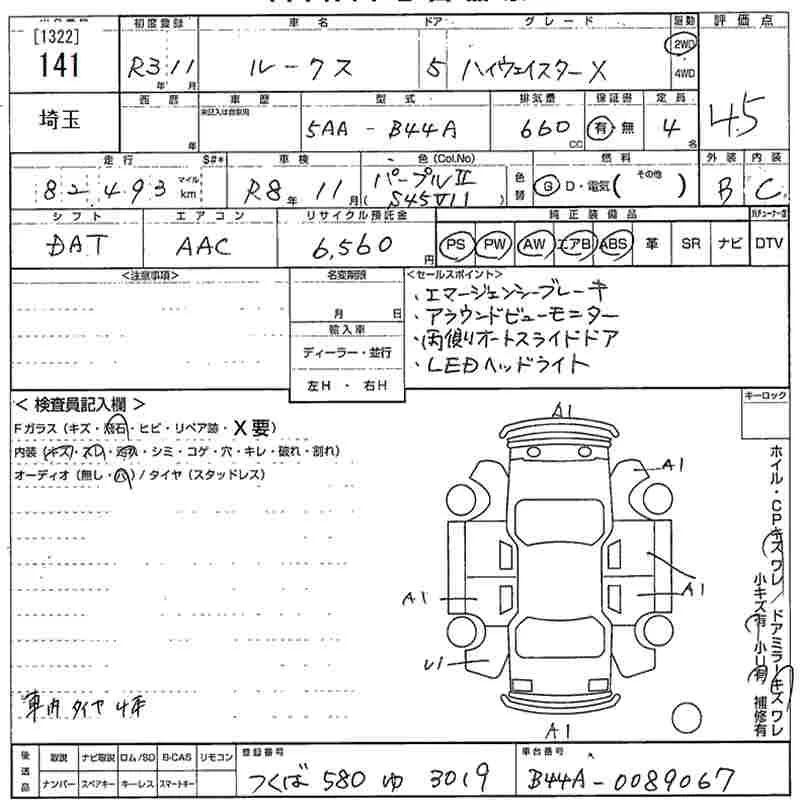 [1322]
141
初度登録 車名 ドア グレード 駆動 評価点
R3 年 11 月 ルークス 5 ハイウェイスターX 2WD 4WD 4.5
埼玉
西暦 車歴 型式 排気量 保証書 定員
年 未記入は自家用 5AA - B44A 660 CC 有・無 4 名
走行 S#* 車検 色 (Col.No) 燃料 外装 内装
82,493 マイル km R8 年 11 月 パープルⅡ ( S45V11 ) 色替 G D・電気 ( その他 ) B C
シフト エアコン リサイクル預託金 純正装備品
DAT AAC 6,560 円 PS PW AW エアB ABS 革 SR ナビ DTV
<注意事項> 名変期限 <セールスポイント>
月 日
・エマージェンシーブレーキ
・アラウンドビューモニター
・両側りオートスライドドア
・LEDヘッドライト
輸入車
ディーラー・並行
左H ・ 右H
< 検査員記入欄 > キーロック
Fガラス (キズ・飛石・ヒビ・リペア跡・X要)
内装 (キズ・スレ・汚れ・シミ・コゲ・穴・キレ・破れ・割れ)
オーディオ (無し・ハ) / タイヤ (スタッドレス)
A1
A1
A1
A1
U1
A1
ホイル・CPキズワレ/ドアミラーキズワレ
小キズ有・小U有 補修有
車内タイヤ4本
後送品 取説 ナビ取説 ロム/SD B-CAS リモコン 登録番号 車台番号
ナンバー スペアキー キーレス スマートキー つくば 580 ゆ 3019 B44A-0089067